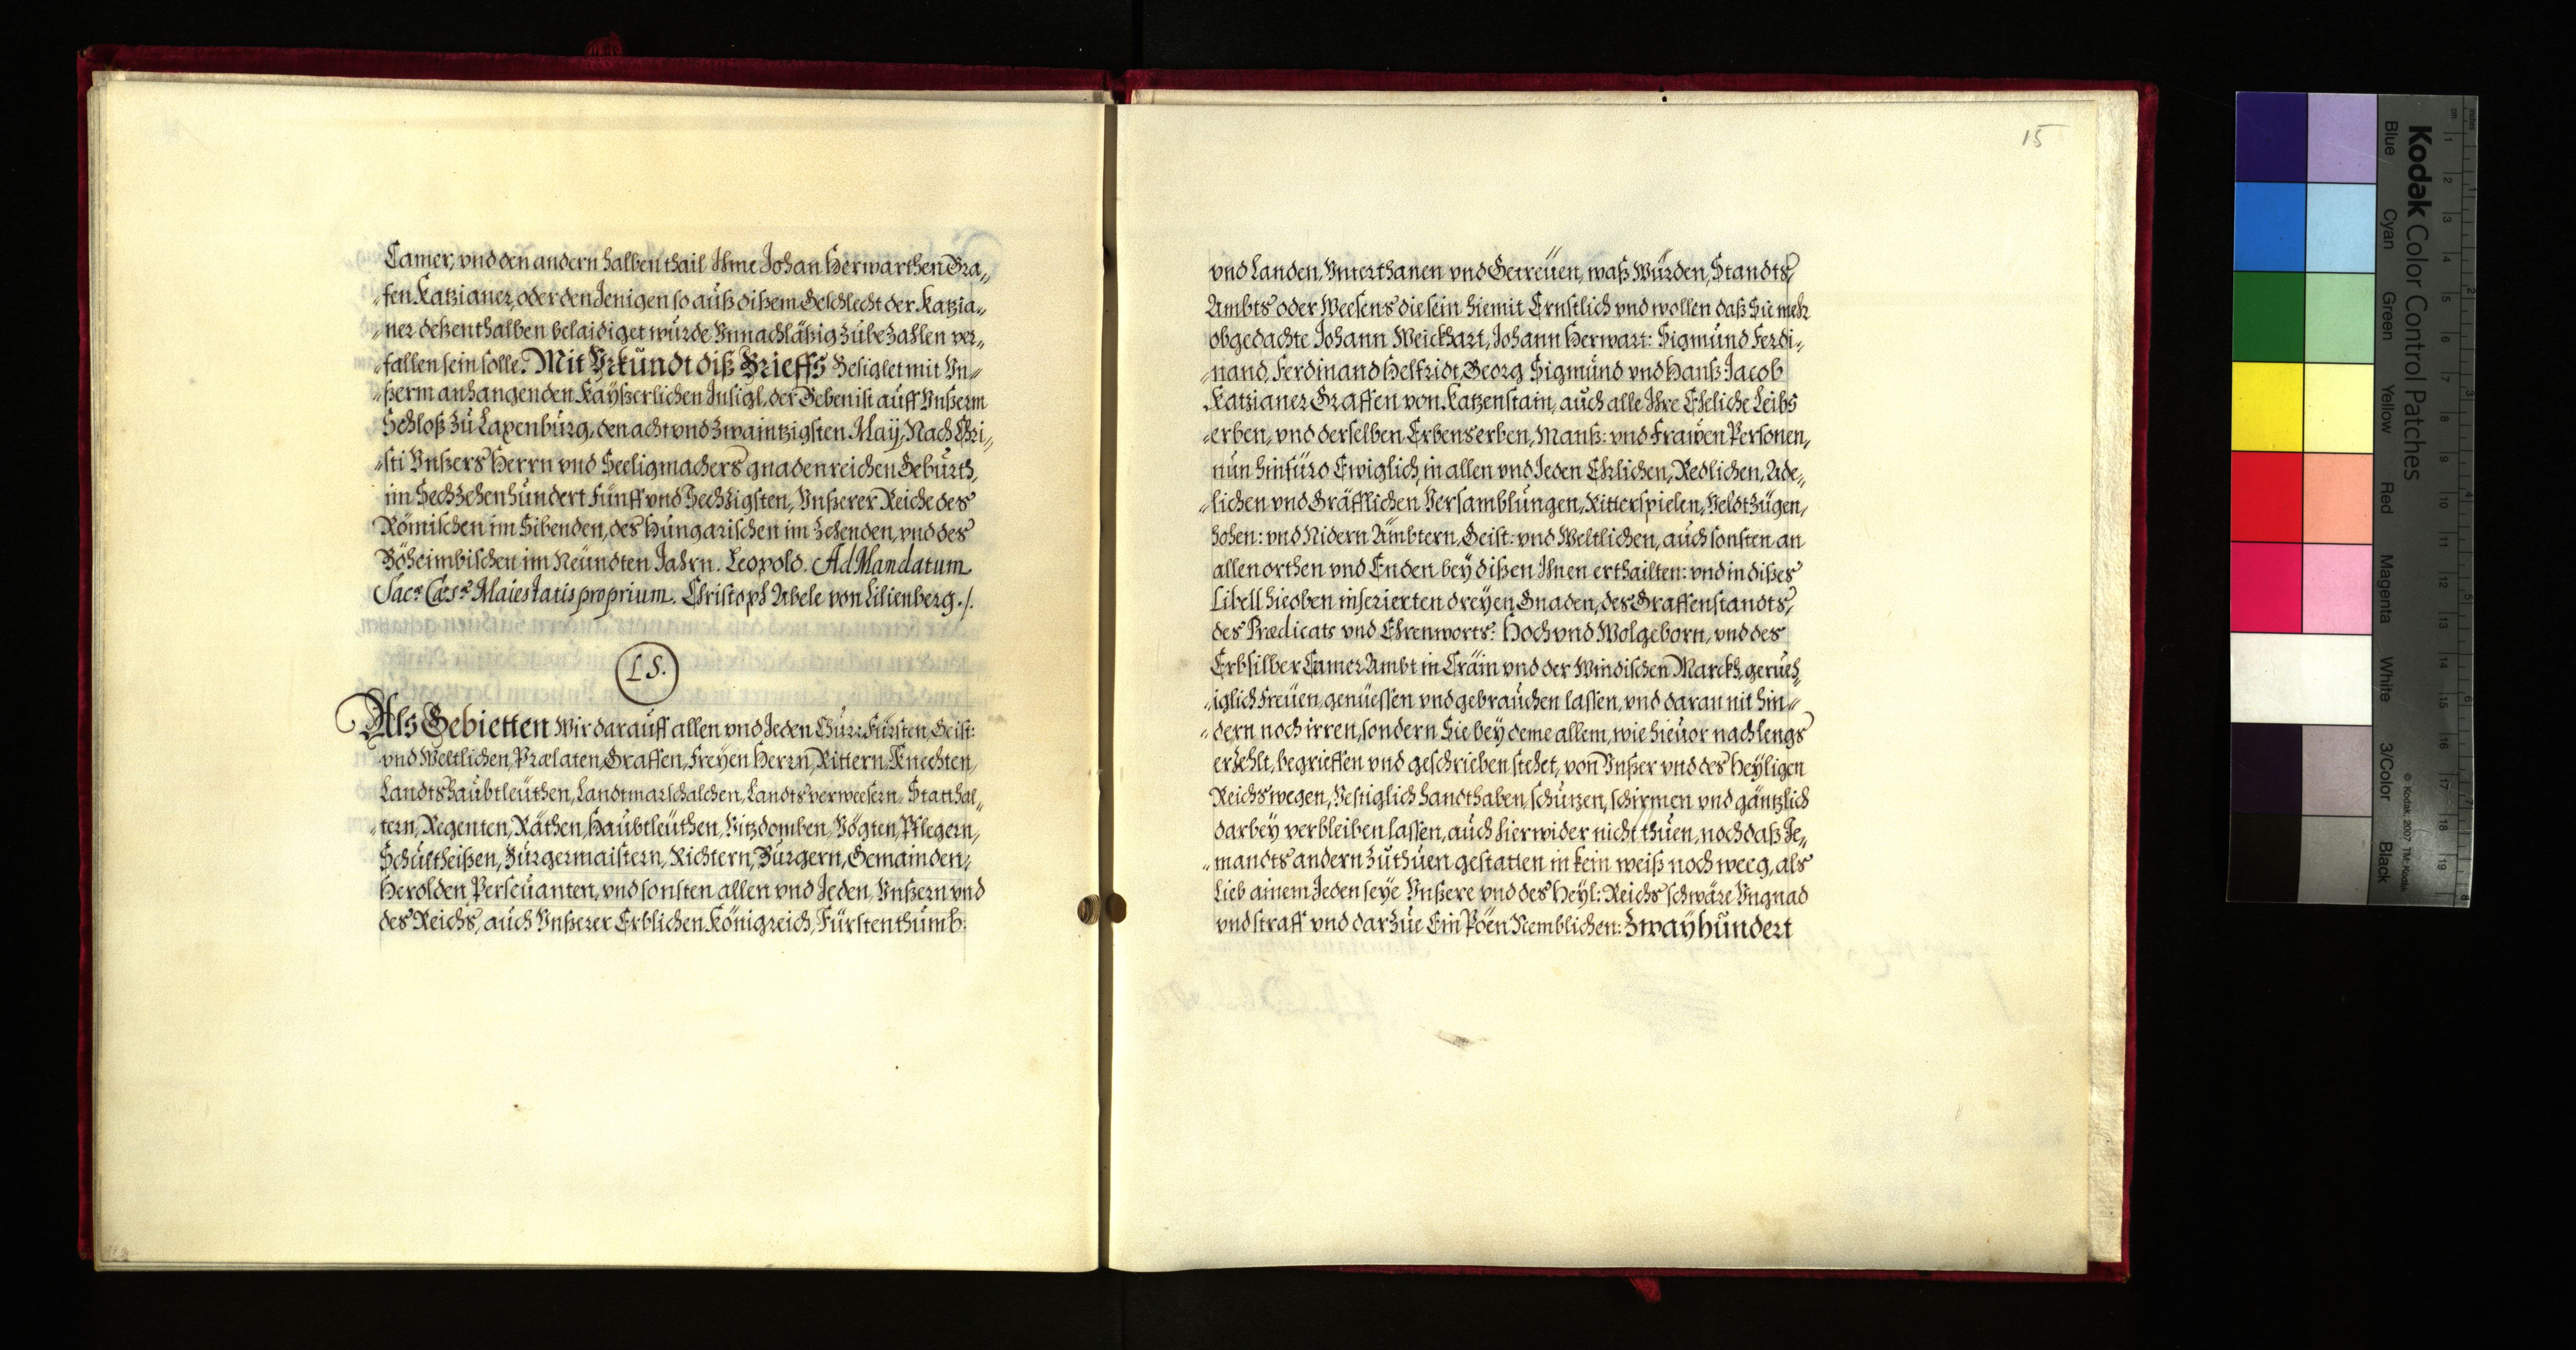 Camer, vnd den andern halben thail Ihme Johan Herwarthen Gra„
„fen Katzianer, oder den Jenigen so auß dißem Geschlecht der Katzia„
„ner deßenthalben belaidiget würde Vnnachläßig zübezahlen ver„
„fallen sein solle. Mit Vrkündt diß Brieffs Besiglet mit Vn„
„ßerm anhangenden Kayßerlichen Insigl, der Geben ist auff Vnßerm
Schloß zü Laxenbürg, den acht vnd zwaintzigsten May, Nach Chri„
„sti Vnßers Herrn vnd Seeligmachers gnadenreichen Gebürth,
im Sechzehenhündert Fünff vnd Sechzigsten, Vnßerer Reiche des
Römischen im Sibenden, des Hüngarischen im Zehenden, vnd des
Böheimbischen im Neündten Jahrn. Leopold. Ad Mandatum
Sacæ Cæsæ Maiestatis proprium. Christoph Abele von Lilienberg ./.
L S.
Als Gebietten Wir daraüff allen vnd Jeden Chür: Fürsten, Geist:
vnd Weltlichen, Prælaten, Graffen, Freyen Herrn, Rittern, Knechten,
Landtshaübtleüthen, Landtmarschalchen, Landtsverweesern, Statthal„
„tern, Regenten, Räthen, Haübtleüthen, Vitzdomben, Vögten, Pflegern,
Schültheißen, Bürgermaistern, Richtern, Bürgern, Gemainden,
Herolden, Perseüanten, vnd sonsten allen vnd Jeden, Vnßern vnd
des Reichs, aüch Vnßerer Erblichen Königreich, Fürstenthümb:
15
vnd Landen, Vnterthanen vnd Getreüen, waß Würden, Standts,
Ambts oder Weesens die sein hiemit Ernstlich vnd wollen daß Sie mehr
obgedachte Johann Weickhart, Johann Herwart: Sigmünd Ferdi„
„nand, Ferdinand Helfridt, Georg Sigmünd vnd Hanß Jacob
Katzianer Graffen von Katzenstain, aüch alle Ihre Eheliche Leibs
„erben, vnd derselben Erbens erben, Manß: vnd Frawen Personen,
nün hinfüro Ewiglich, in allen vnd Jeden Ehrlichen, Redlichen, Ade„
„lichen vnd Gräfflichen Versamblüngen, Ritterspielen, Veldtzügen,
hohen: vnd Nidern Ämbtern, Geist: vnd Weltlichen, aüch sonsten an
allen orthen vnd Enden bey dißen Ihnen erthailten: vnd in dißes
Libell hieoben inserierten dreyen Gnaden, des Graffenstandts,
des Prædicats vnd Ehrenworts: Hoch vnd Wolgeborn, vnd des
Erbsilber Camer Ambt in Cräin vnd der Windischen Marckh, gerueh„
„iglich freüen, genüessen vnd gebraüchen lassen, vnd daran nit hin„
„dern noch irren, sondern Sie bey deme allem, wie hieüor nach lengs
erzehlt, begrieffen vnd geschrieben stehet, von Vnßer vnd des Heyligen
Reichs wegen, Vestiglich handthaben, schützen, schirmen vnd gäntzlich
darbey verbleiben lassen, aüch hierwider nicht thüen, noch daß Je„
„mandts andern zü thüen gestatten in kein weiß noch weeg, als
Lieb ainem Jeden seye Vnßere vnd des Heyl: Reichs schwäre Vngnad
vnd straff vnd darzüe Ein Pöen Nemblichen: Zwayhündert
Kodak Color Control Patches
Blue Cyan Green Yellow Red Magenta White 3/Color Black
© Kodak, 2007 TM: Kodak